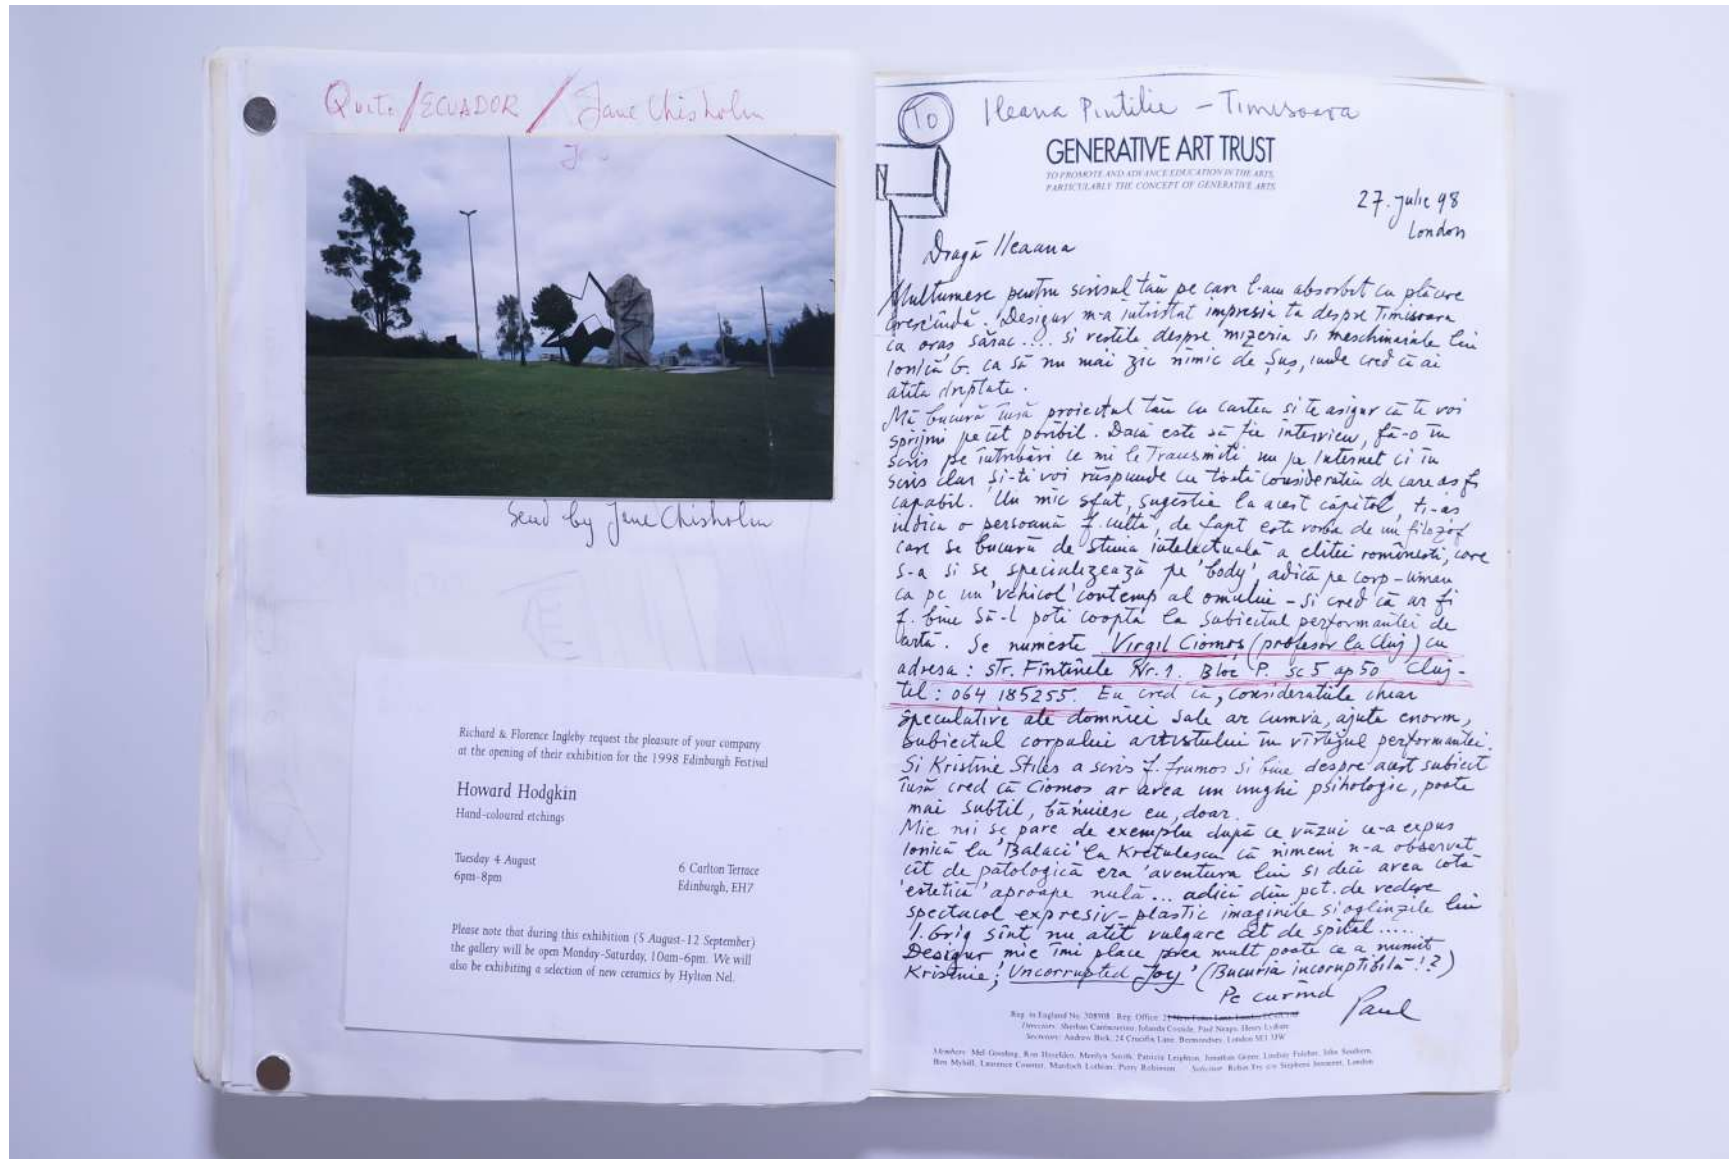 Quito/ECUADOR / Jane Chisholm
Send by Jane Chisholm
Richard & Florence Ingleby request the pleasure of your company
at the opening of their exhibition for the 1998 Edinburgh Festival
Howard Hodgkin
Hand-coloured etchings
Tuesday 4 August
6pm-8pm
6 Carlton Terrace
Edinburgh, EH7
Please note that during this exhibition (5 August-12 September)
the gallery will be open Monday-Saturday, 10am-6pm. We will
also be exhibiting a selection of new ceramics by Hylton Nel.
TO Ileana Pintilie - Timisoara
GENERATIVE ART TRUST
TO PROMOTE AND ADVANCE EDUCATION IN THE ARTS,
PARTICULARLY THE CONCEPT OF GENERATIVE ARTS.
27. Julie 98
London
Dragă Ileana
Multumesc pentru scrisul tău pe care l-am absorbit cu plăcere
crescîndă. Desigur m-a întristat impresia ta despre Timisoara
ca oras sărac.... si vestile despre mizeria si meschinariile lui
Ionică G. ca să nu mai zic nimic de Șuș, unde cred că ai
atîta dreptate.
Mă bucură însă proiectul tău cu cartea si te asigur că te voi
sprijini pe cît posibil. Dacă este să fie interview, fă-o în
scris pe întrebări ce mi le Transmiti nu pe Internet ci în
scris clar și-ti voi răspunde cu toată consideratia de care as fi
capabil. Un mic sfat, sugestie la acest capitol, ti-as
indica o persoană f. cultă, de fapt este vorba de un filozof
care se bucură de stima intelectuală a elitei românesti, care
s-a si se specializează pe 'body' adică pe corp-uman
ca pe un 'vehicol' contemp al omului - si cred că ar fi
f. bine să-l poti coopta la subiectul performantei de
artă. Se numeste Virgil Ciomoș (profesor la Cluj) cu
adresa: str. Fîntînele Nr. 1. Bloc P. sc 5 ap 50 Cluj-
tel: 064 185255. Eu cred că, consideratiile chiar
speculative ale domniei sale ar cumva, ajuta enorm,
subiectul corpului artistului în vîrtejul performantei.
Si Kristine Stiles a scris f. frumos si bine despre acest subiect
însă cred că Ciomos ar avea un unghi psihologic, poate
mai subtil, bănuiesc eu, doar.
Mie mi se pare de exemplu după ce văzui ce-a expus
Ionică la 'Balaci' la Kretulescu că nimeni n-a observat
cît de patologică era 'aventura lui si deci avea cotă
'estetică' aproape nulă... adică din pct. de vedere
spectacol expresiv-plastic imaginile si oglinzile lui
I. Grig sînt nu atît vulgare cît de spital.....
Desigur mie îmi place prea mult poate ce a numit
Kristine; 'Uncorrupted Joy' (Bucuria incoruptibilă!?)
Pe curînd Paul
Reg. in England No. 308908 Reg. Office:
Directors: Sherban Cantacuzino, Paul Neagu,
Secretary: Andrew Bick, 24 Crucifix Lane, Bermondsey, London SE1 3JW
Members: Mel Gooding, Ron Haselden, Merilyn Smith, Patricia Leighton, Jonathan Lindsay John Southern,
Murdoch Lothian, Perry Robinson Solicitor: Robin Fry c/o Stephens Innocent, London